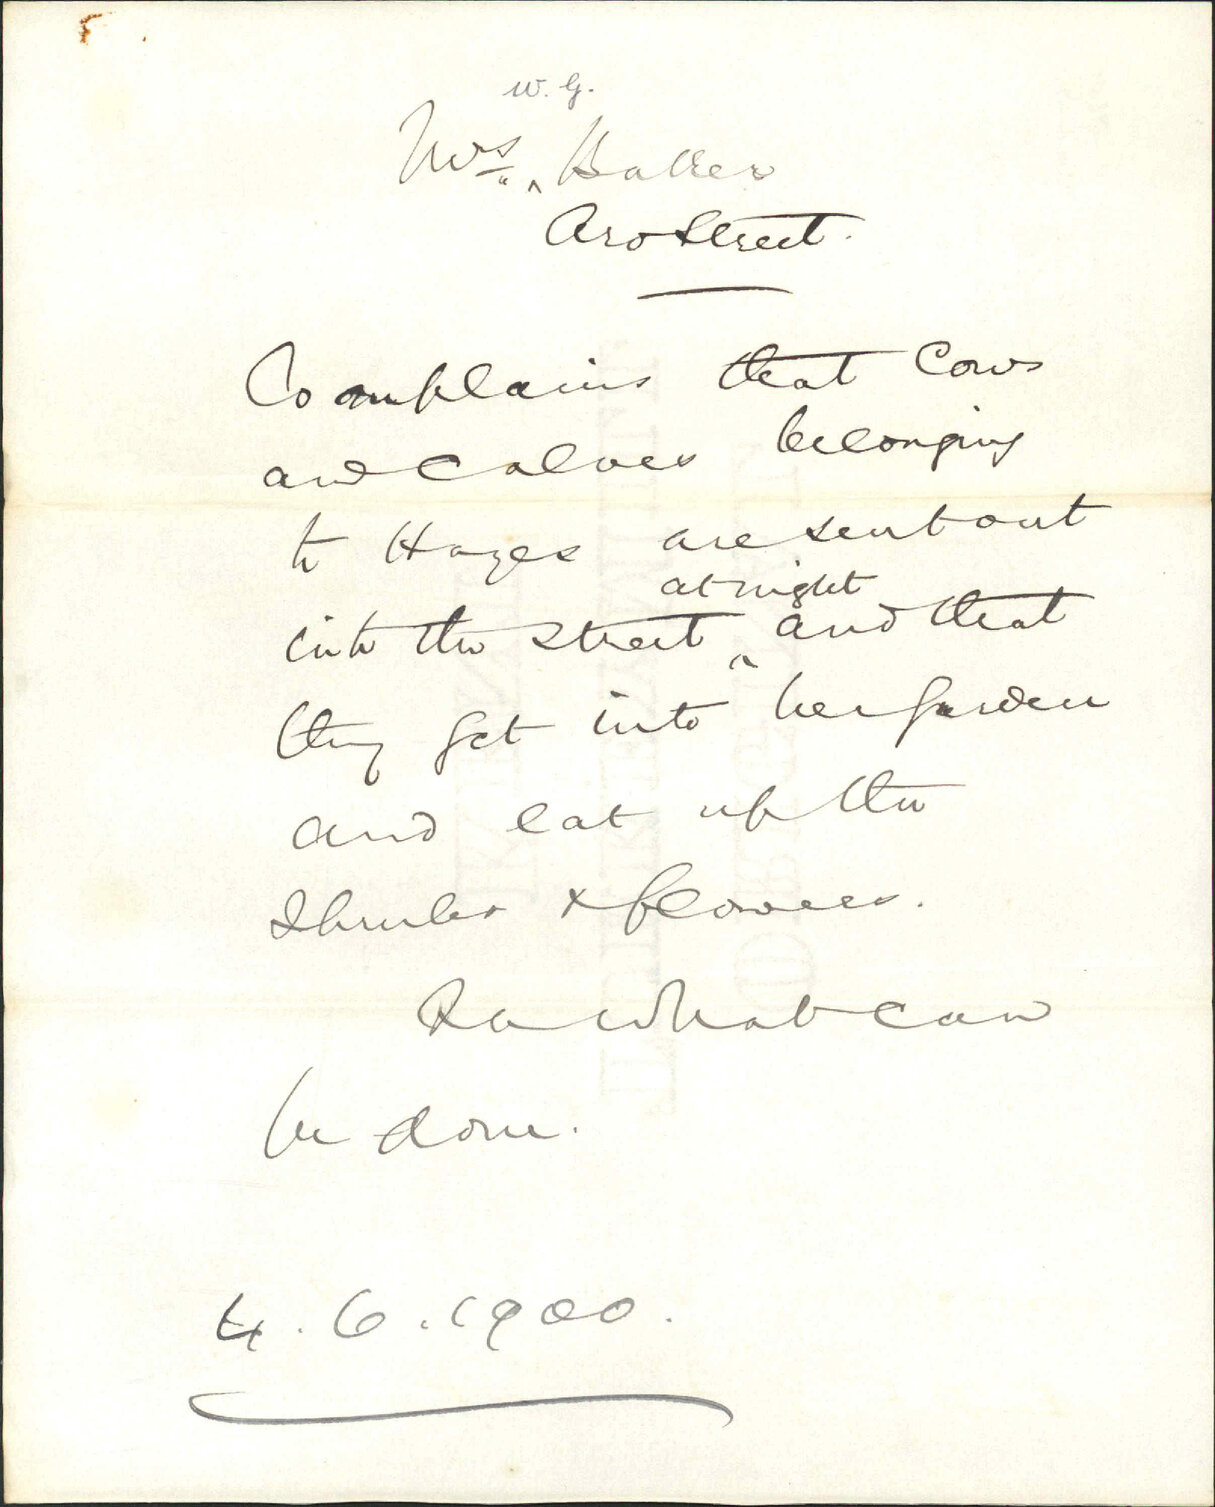 W. G.
Mrs Baker
Aro Street.
Complains that Cows
and Calves belonging
to Hayes are sent out
at night
into the street and that
they get into her garden
and eat up the
Shrubs & flowers.
what can
be done.
4.6.1900.